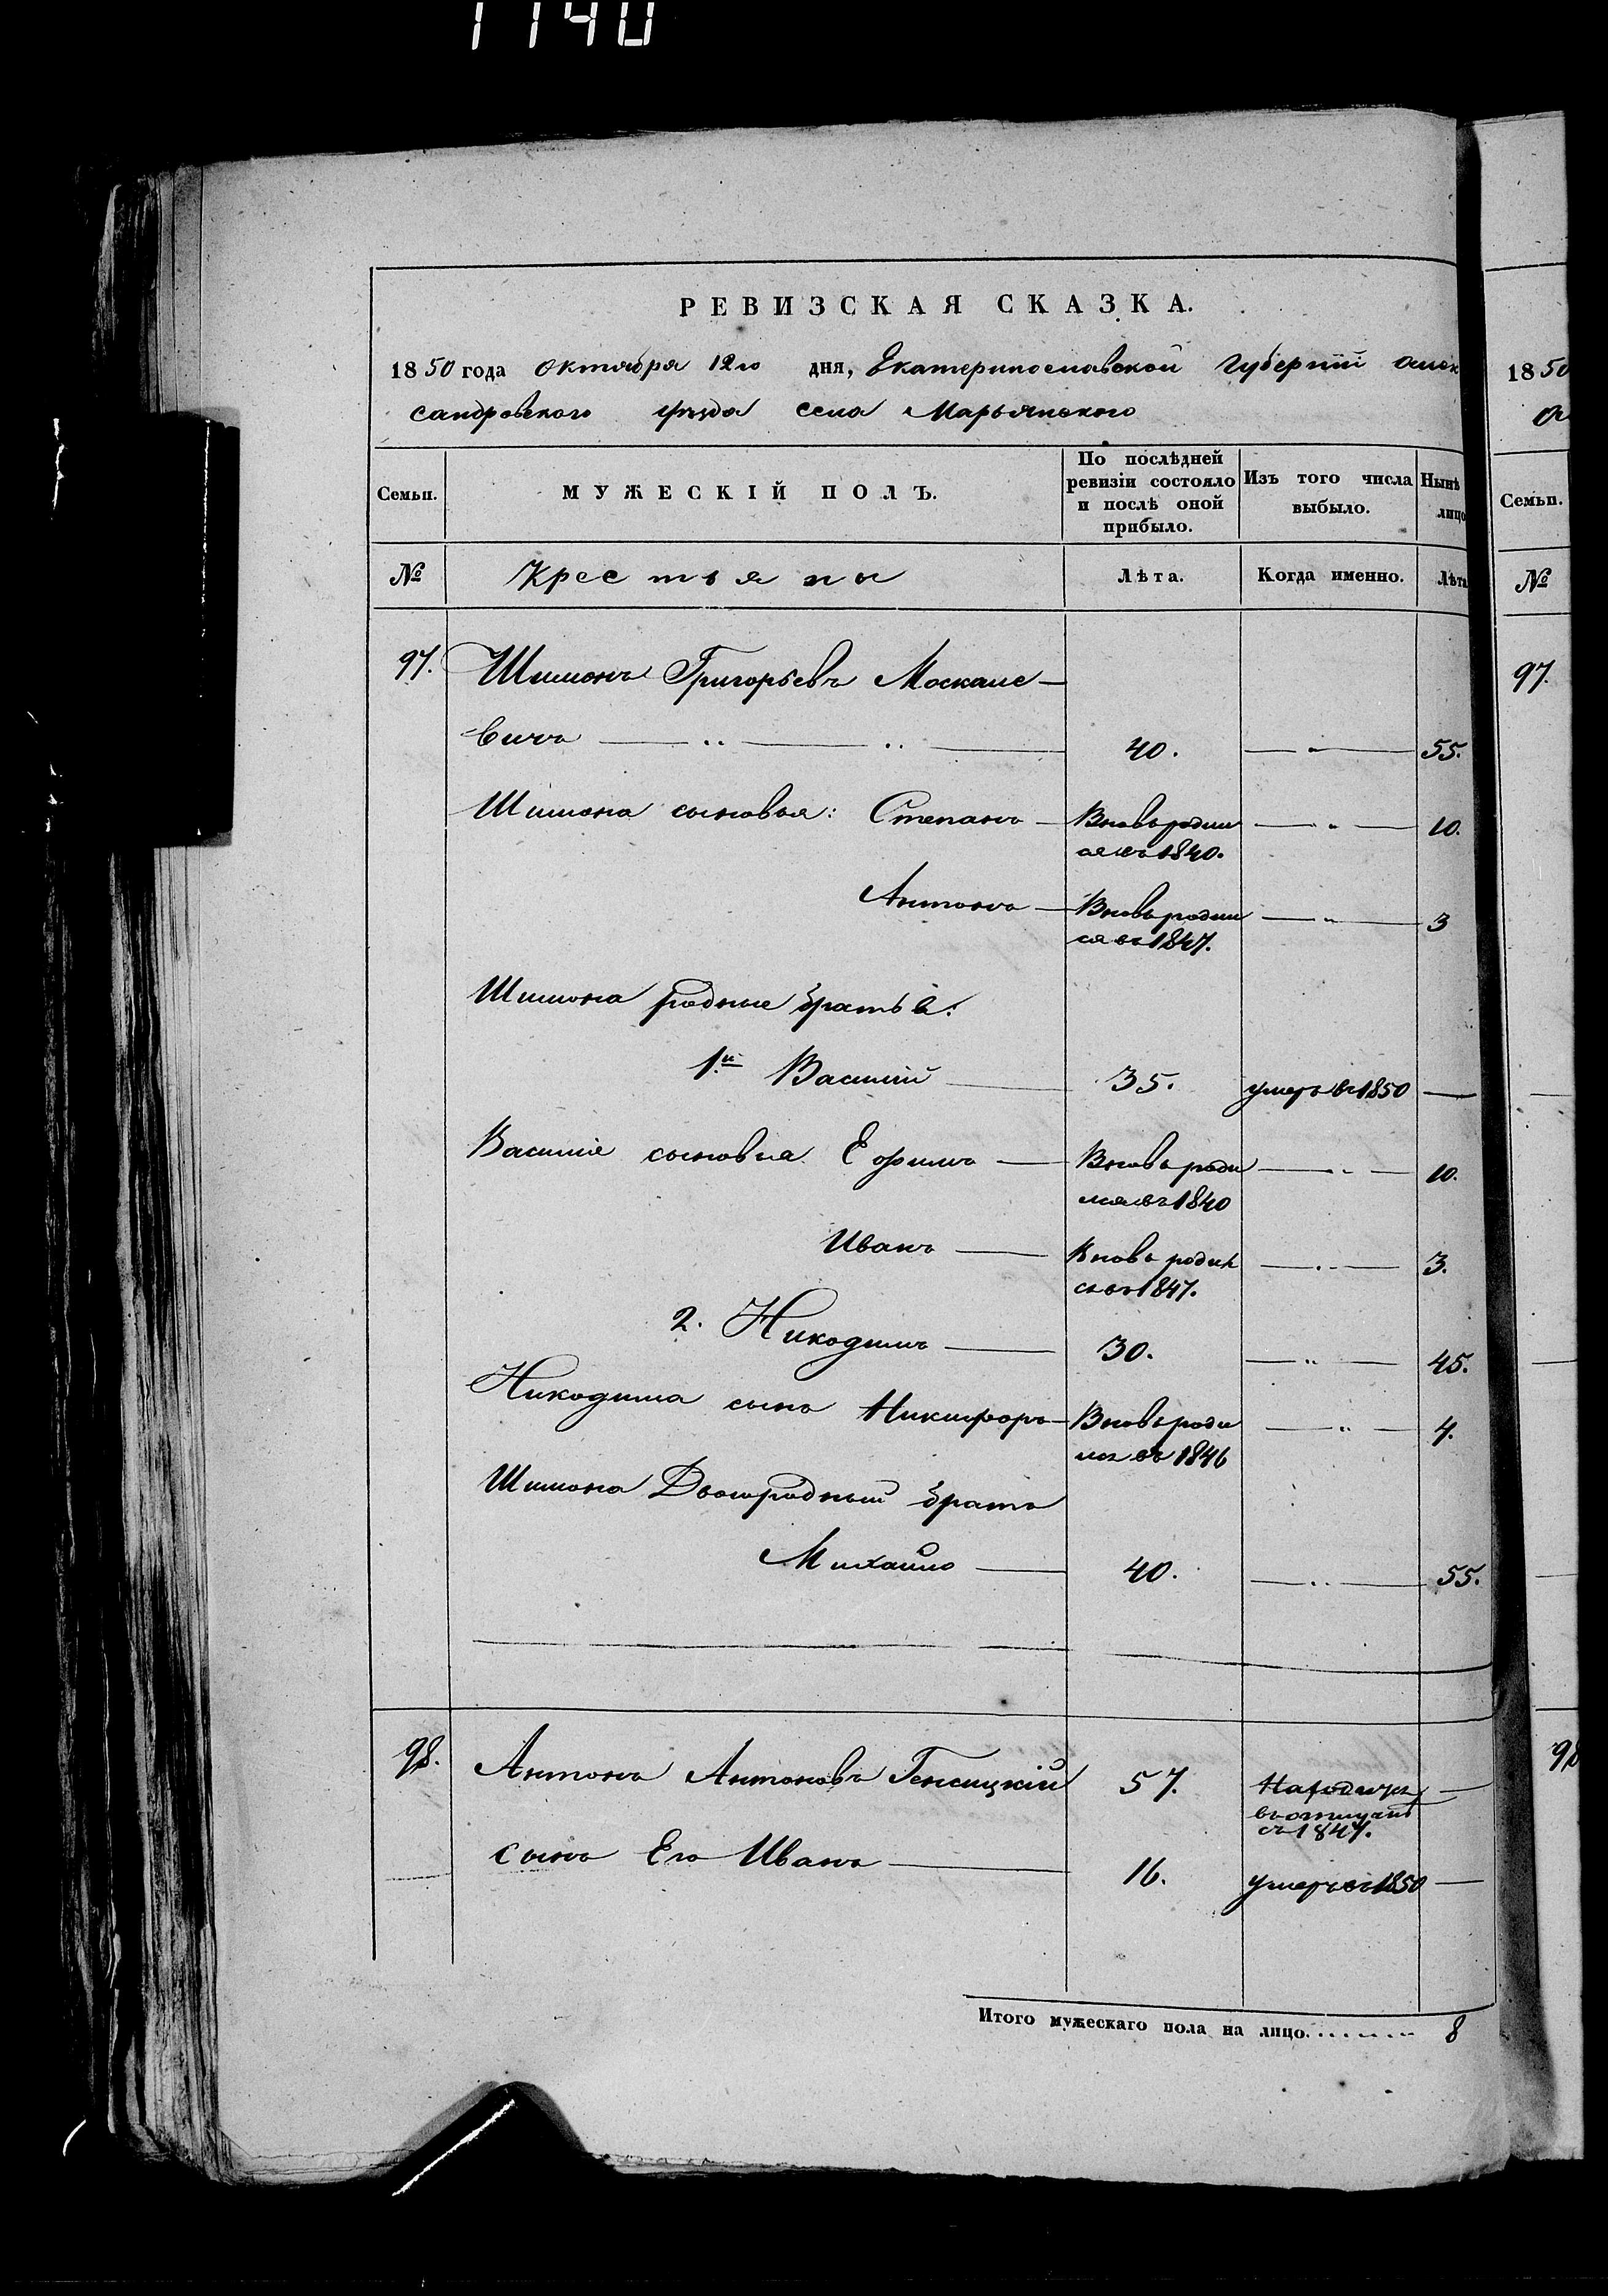 1140
РЕВИЗСКАЯ СКАЗКА.
1850 года Октября 12го дня, Екатеринославской Губернии Алек
сандровского уѣзда села Марьянского
1850
Семьи.
МУЖЕСКІЙ ПОЛЪ.
По послѣдней ревизіи состояло и послѣ оной прибыло.
Изъ того числа выбыло.
Нынѣ лицо
Семьи.
№
Крестьяны
Лѣта.
Когда именно.
Лѣта
№
97. Шимонъ Григорьевъ Москале-
97.
вичъ 40. 55.
Шимона сыновья: Степанъ Вновь родил 10.
ся въ 1840.
Антонъ Вновь родил 3
ся въ 1847.
Шимона родные братья:
1й Василій 35. умеръ въ 1850
Василія сыновья Ефимъ Вновь роди 10.
лся въ 1840
Иванъ Вновь родил 3.
ся въ 1847.
2. Никодимъ 30. 45.
Никодима сынъ Никифоръ Вновь роди 4.
лся въ 1846
Шимона Двоюродный братъ
Михайло 40. 55.
98. Антонъ Антоновъ Генсицкій 57. Находится
въ отлучкѣ
съ 1847.
98
сынъ Его Иванъ 16. умеръ въ 1850
Итого мужескаго пола на лицо. 8